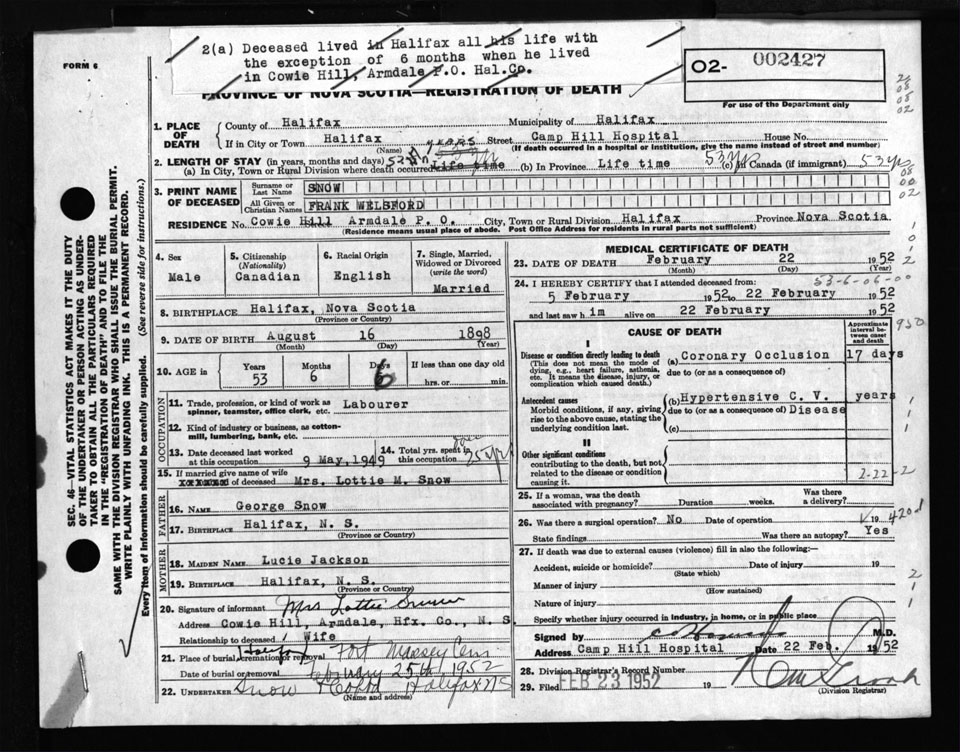 FORM 6
2(a) Deceased lived in Halifax all his life with
the exception of 6 months when he lived
in Cowie Hill, Armdale P.O. Hal.Co.
02- 002427
For use of the Department only
PROVINCE OF NOVA SCOTIA—REGISTRATION OF DEATH
1. PLACE OF DEATH
County of Halifax Municipality of Halifax
If in City or Town Halifax (Name) Street Camp Hill Hospital House No.
(If death occurred in a hospital or institution, give the name instead of street and number)
2. LENGTH OF STAY (in years, months and days)
(a) In City, Town or Rural Division where death occurred Life time (b) In Province Life time 53 yr (c) in Canada (if immigrant) 53 yr
3. PRINT NAME OF DECEASED
Surname or Last Name SNOW
All Given or Christian Names FRANK WELSFORD
RESIDENCE No. Cowie Hill Armdale P. O. City, Town or Rural Division Halifax Province Nova Scotia
(Residence means usual place of abode. Post Office Address for residents in rural parts not sufficient)
4. Sex Male
5. Citizenship (Nationality) Canadian
6. Racial Origin English
7. Single, Married, Widowed or Divorced (write the word) Married
8. BIRTHPLACE Halifax, Nova Scotia
(Province or Country)
9. DATE OF BIRTH August 16 1898
(Month) (Day) (Year)
10. AGE in Years 53 Months 6 Days 6 If less than one day old hrs. or min.
OCCUPATION
11. Trade, profession, or kind of work as spinner, teamster, office clerk, etc. Labourer
12. Kind of industry or business, as cotton-mill, lumbering, bank, etc.
13. Date deceased last worked at this occupation 9 May, 1949
14. Total yrs. spent in this occupation 25 yrs
15. If married give name of wife of deceased Mrs. Lottie M. Snow
FATHER
16. NAME George Snow
17. BIRTHPLACE Halifax, N. S.
(Province or Country)
MOTHER
18. MAIDEN NAME Lucie Jackson
19. BIRTHPLACE Halifax, N. S.
(Province or Country)
20. Signature of informant Mrs Lottie Snow
Address Cowie Hill, Armdale, Hfx. Co., N. S.
Relationship to deceased Wife
21. Place of burial, cremation or removal Halifax Fort Massey Cem
Date of burial or removal February 25th 1952
22. UNDERTAKER Snow Halifax NS
(Name and address)
MEDICAL CERTIFICATE OF DEATH
23. DATE OF DEATH February 22 1952
(Month) (Day) (Year)
53-6-06-00
24. I HEREBY CERTIFY that I attended deceased from:
5 February 1952 to 22 February 1952
and last saw him alive on 22 February 1952
CAUSE OF DEATH
Approximate interval between cause and death
I
Disease or condition directly leading to death (a) Coronary Occlusion 17 days
(This does not mean the mode of dying, e.g., heart failure, asthenia, etc. It means the disease, injury, or complication which caused death.)
due to (or as a consequence of)
Antecedent causes (b) Hypertensive C. V. years
Morbid conditions, if any, giving rise to the above cause, stating the underlying condition last.
due to (or as a consequence of) Disease
(c)
II
Other significant conditions contributing to the death, but not related to the disease or condition causing it.
2-22-2
25. If a woman, was the death associated with pregnancy? Duration weeks. Was there a delivery?
26. Was there a surgical operation? No Date of operation 19
State findings Was there an autopsy? Yes
27. If death was due to external causes (violence) fill in also the following:—
Accident, suicide or homicide? Date of injury 19
(State which)
Manner of injury
(How sustained)
Nature of injury
Specify whether injury occurred in industry, in home, or in public place
Signed by M.D.
Address Camp Hill Hospital Date 22 Feb. 1952
28. Division Registrar's Record Number
29. Filed FEB 23 1952 19
(Division Registrar)
SEC. 46—VITAL STATISTICS ACT MAKES IT THE DUTY
OF THE UNDERTAKER OR PERSON ACTING AS UNDER-
TAKER TO OBTAIN ALL THE PARTICULARS REQUIRED
IN THE "REGISTRATION OF DEATH" AND TO FILE THE
SAME WITH THE DIVISION REGISTRAR WHO SHALL ISSUE THE BURIAL PERMIT.
WRITE PLAINLY WITH UNFADING INK. THIS IS A PERMANENT RECORD.
Every item of information should be carefully supplied. (See reverse side for instructions.)